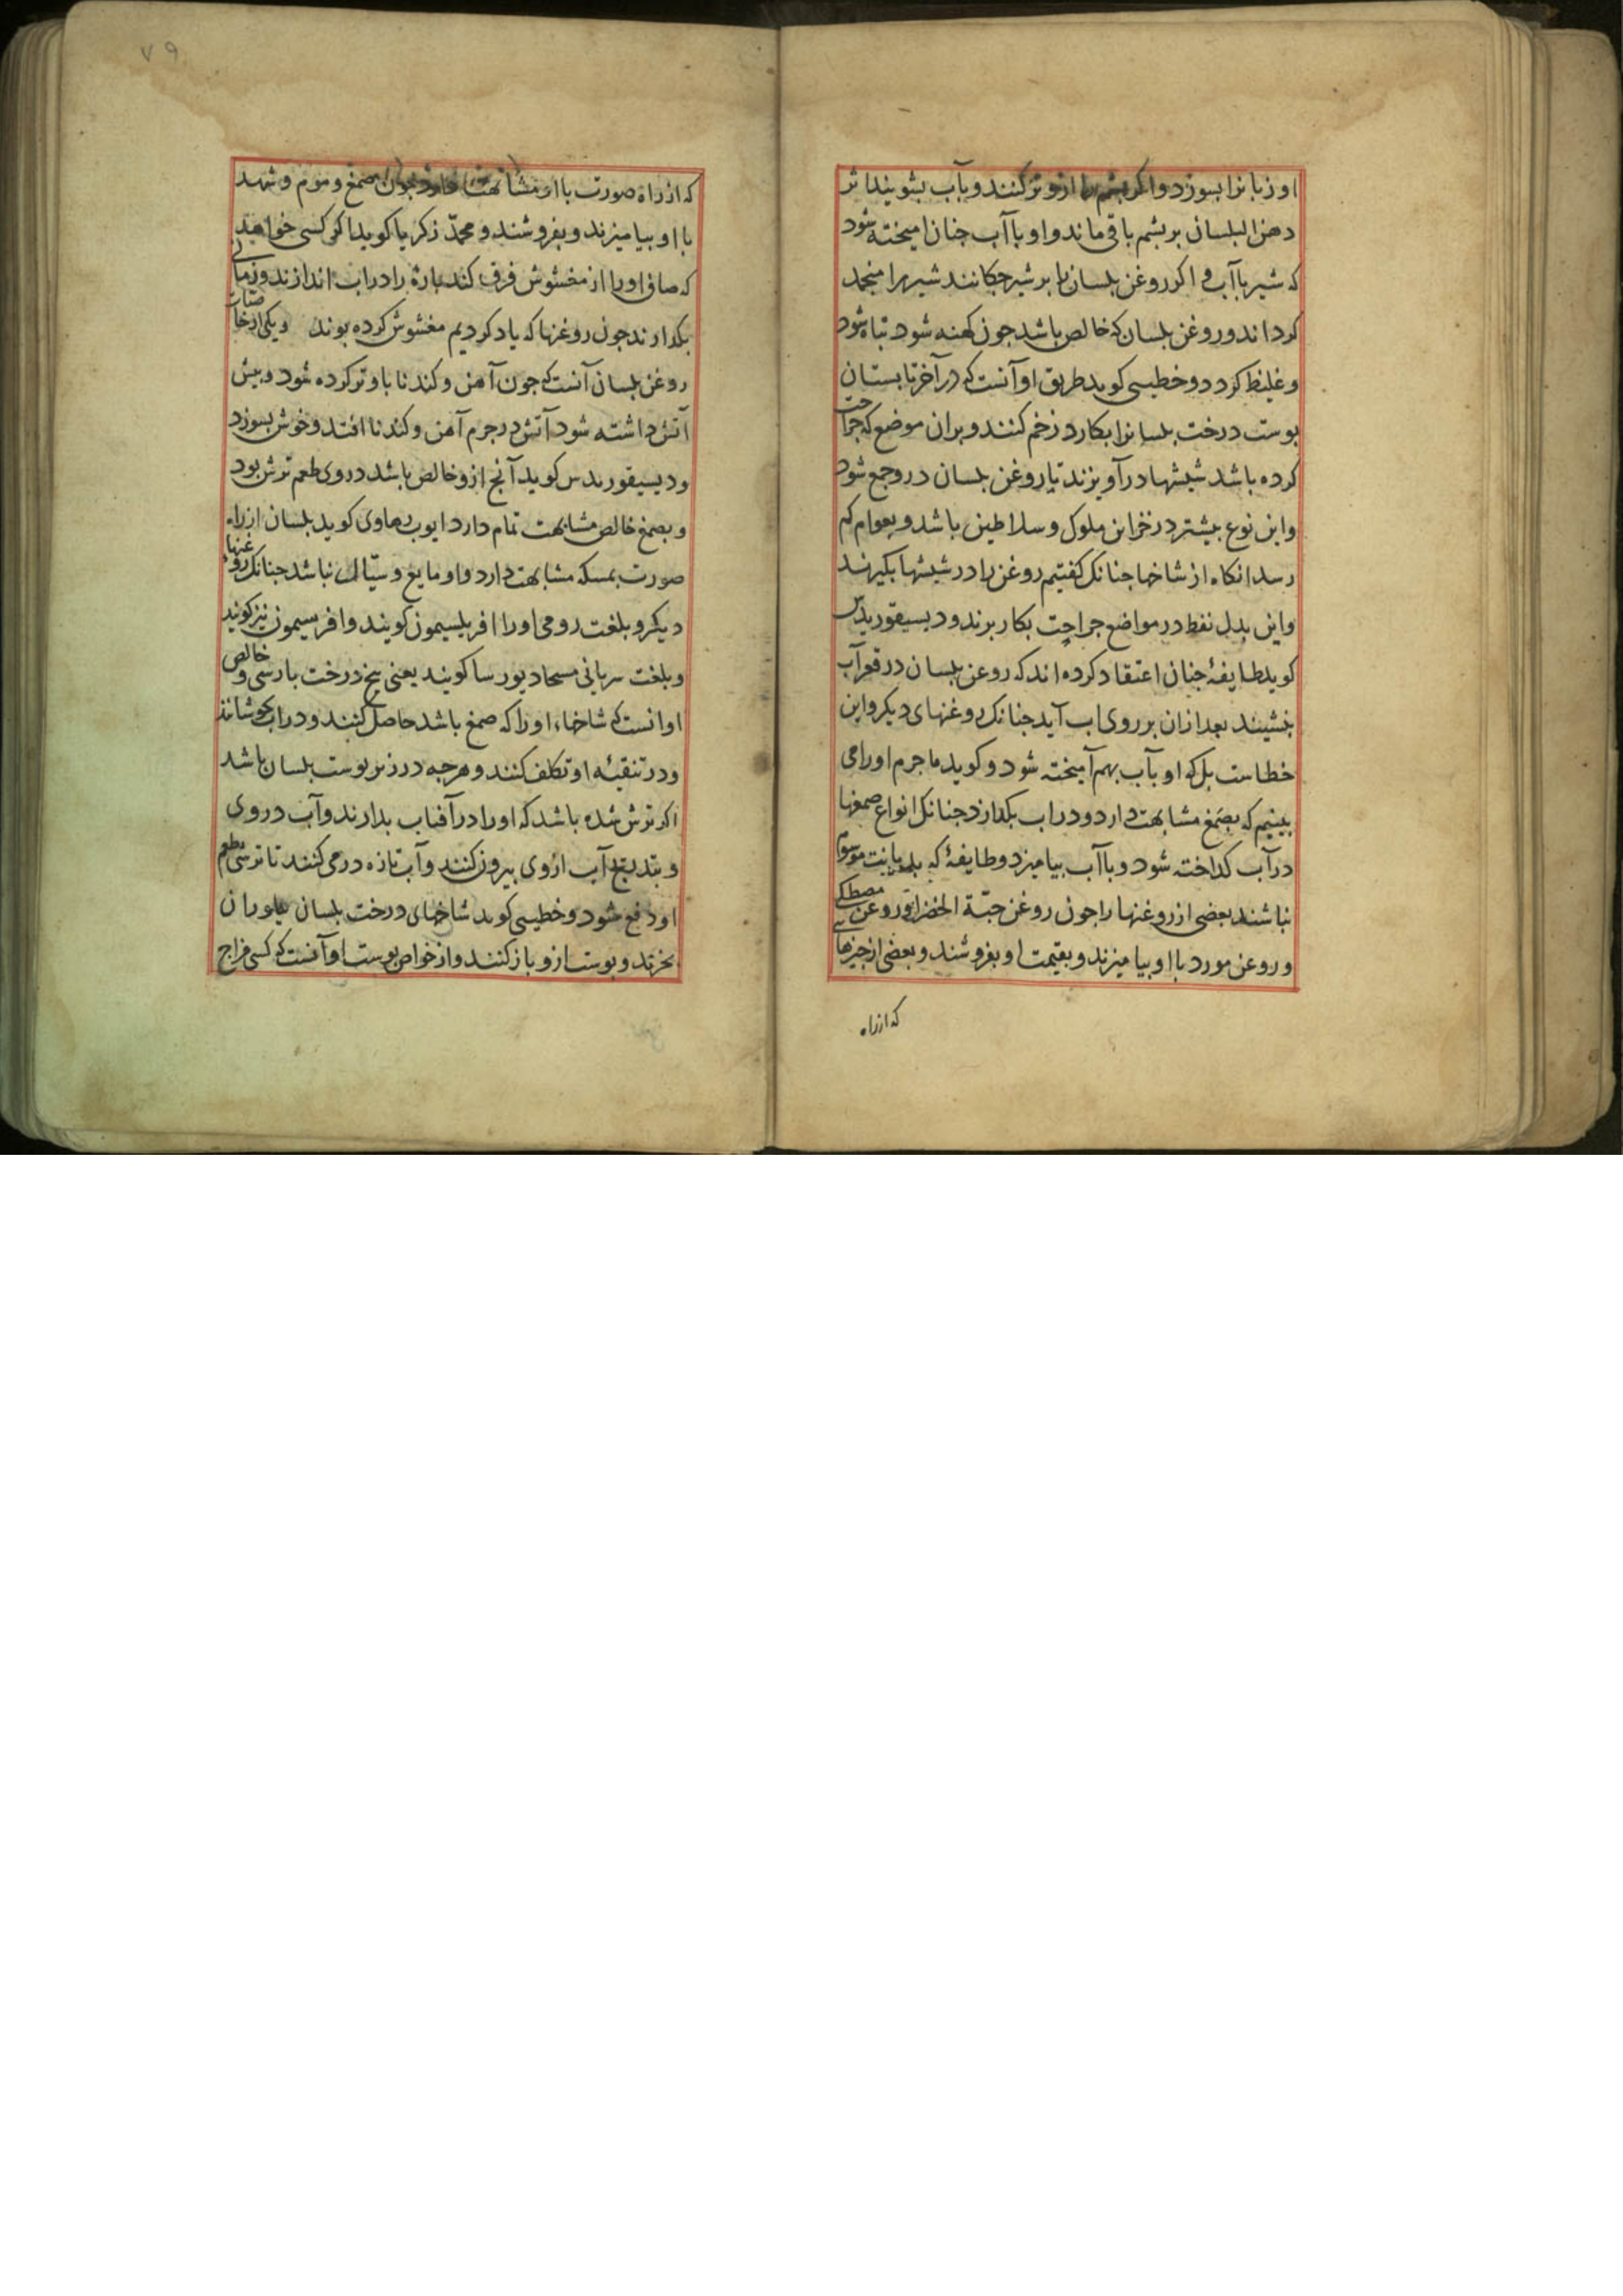 او زبانرا بسوزد و اگر پشم را ازو تر کنند و بآب بشویند اثر
دهن البلسان بر پشم باقی ماند و او با آب چنان امیخته شود
که شیر با آب و اکر روغن بلسان را بر شیر چکانند شیر را منجمد
کرداند و روغن بلسان که خالص باشد جون کهنه شود تباه شود
و غلیظ کردد و خطیبی کوید طریق او آنست که در آخر تابستان
پوست درخت بلسانرا بکارد زخم کنند و بران موضع که جراحت
کرده باشد شیشها در آویزند تا روغن بلسان درو جمع شود
و این نوع بیشتر در خزاین ملوک و سلاطین باشد و بعوام کم
رسد انکاه از شاخها جنانک کفتیم روغن را در شیشها بکیرند
و این بدل نفط در مواضع جراحت بکار برند و دیسیقوریدس
کوید طایفهٔ جنان اعتقاد کرده اند که روغن بلسان در قعر آب
نشیند بعد ازان بر روی اب آید جنانک روغنهای دیکر و این
خطاست بل که او بآب بهم آمیخته شود و کوید ما جرم اورا می
بینیم که بصمغ مشابهت دارد و در اب بکدازد جنانک انواع صمغها
در آب کداخته شود و با آب بیامیزد و طایفهٔ که بدیانت موسوم
نباشند بعضی از روغنها را جون روغن حبّة الخضرا و روغن مصطکی
و روغن مورد با او بیامیزند و بقیمت او بفروشند و بعضی از جیزهایی
که از راه
٧٩
که از راه صورت با او مشابهت دارد جون صمغ و موم و شهد
با او بیامیزند و بفروشند و محمّد زکریا کوید اکر کسی خواهد
که صافی اورا از مغشوش فرق کند پارهٔ را در اب اندازند و زمانی
بکدارند جون روغنها که یاد کردیم مغشوش کرده بوند و یکی از خاصیات
روغن بلسان آنست که جون آهن و کندنا باو تر کرده شود و پیش
آتش داشته شود آتش در جرم آهن و کندنا افتد و خوش بسوزد
و دیسیقوریدس کوید آنج ازو خالص باشد در وی طعم ترش بود
و بصمغ خالص مشابهت تمام دارد ایوب رهاوی کوید بلسان از راه
صورت بمسکه مشابهت دارد و او مایع و سیّال نباشد جنانک روغنها
دیکر و بلغت رومی اورا افربلسیمون کویند و افربسیمون نیز کویند
و بلغت سریانی کویند یعنی بیخ درخت پارسی و خالص
او انست که شاخهاء اورا که صمغ باشد حاصل کنند و در اب بجوشانند
و در تنقیهٔ او تکلف کنند و هرجه در زیر پوست بلسان باشد
اکر ترش شده باشد که اورا در آفتاب بدارند و آب در وی
و بتدریج آب ازوی بیرون کنند و آب تازه در می کنند تا ترشی طعم
او دفع شود و خطیبی کوید شاخهای درخت بلسان
بخرند و پوست ازو باز کنند و از خواص پوست او آنست که کسی مزاج